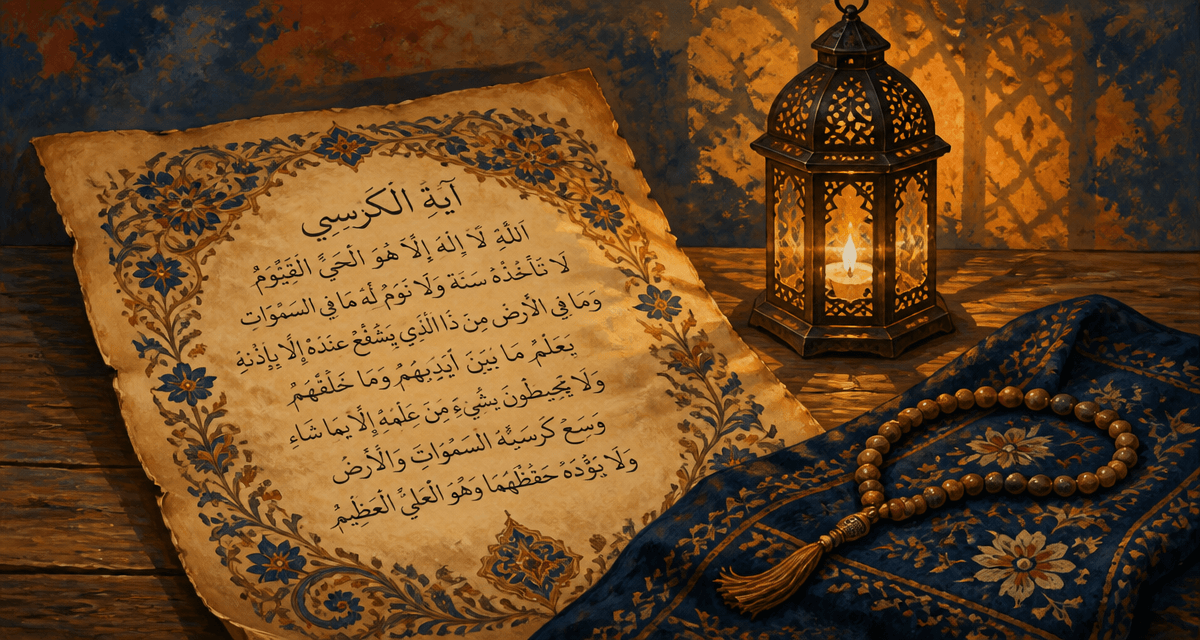 آيَةُ الْكَرْسِي
اَللَّهُ لَا إِلٰهَ إِلَّا هُوَ الْحَيُّ الْقَيُّومُ
لَا تَأْخُذُهُ سَنَةٌ وَلَا نَوْمٌ لَهُ مَا فِي السَّمٰوَاتِ
وَمَا فِي الْأَرْضِ مِنَ ذَا الَّذِي يَشْفَعُ عِنْدَهُ إِلَّا بِإِذْنِهِ
يَعْلَمُ مَا بَيْنَ أَيْدِيهِمُ وَمَا خَلْفَهُمُ
وَلَا يُحِيطُونَ بِشَيْءٍ مِنَ عِلْمِهِ إِلَّا بِمَا شَاءِ
وَسِعَ كُرْسِيُّهُ السَّمٰوَاتِ وَالْأَرْضَ
وَلَا يَؤُدَهُ حِفْظُهُمَا وَهُوَ الْعَلِيُّ الْعَظِيمُ